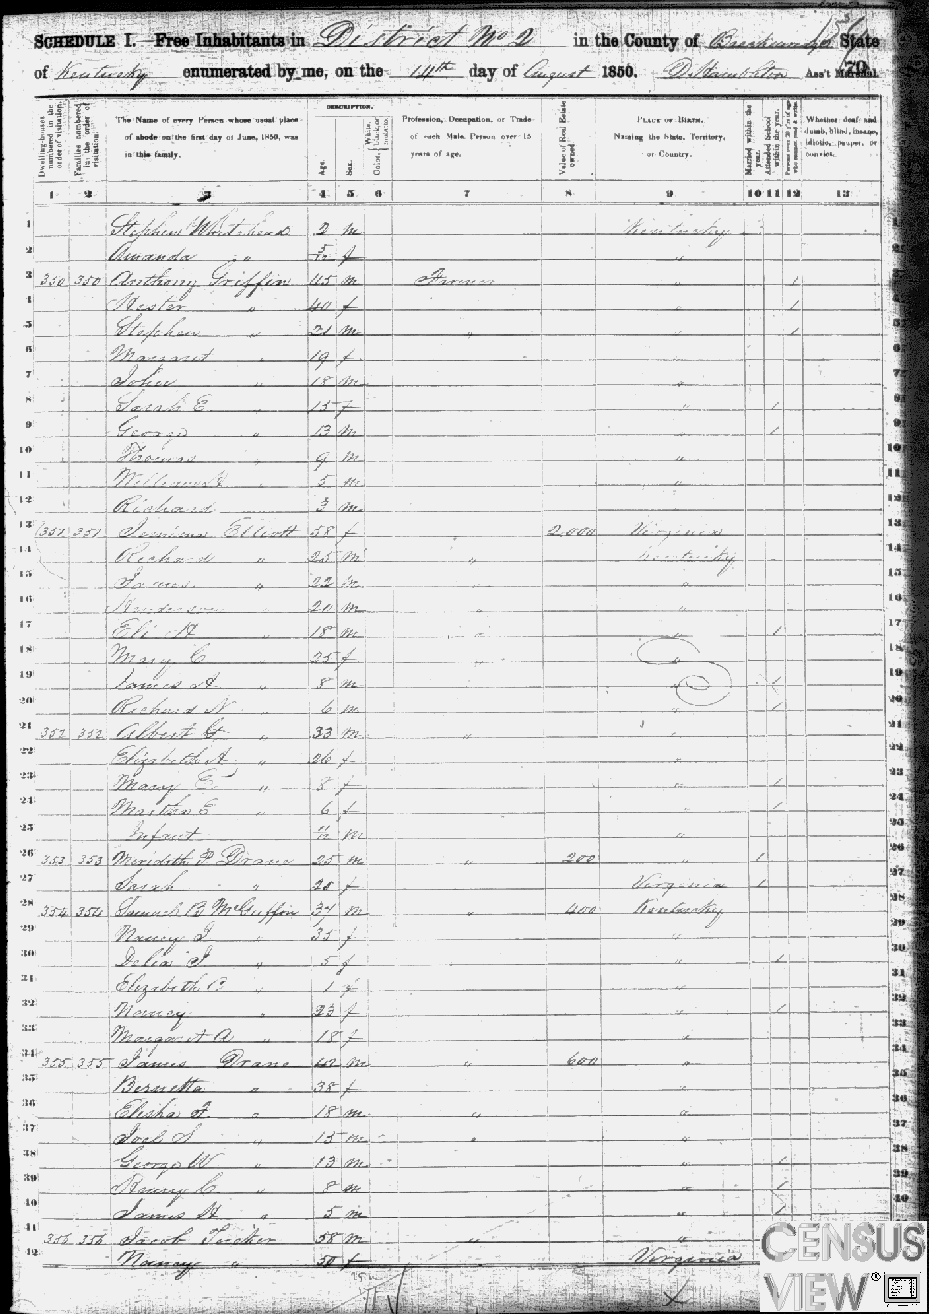 SCHEDULE I.—Free Inhabitants in District No 2 in the County of Breckenridge State
of Kentucky enumerated by me, on the 14th day of August 1850. Ass't Marshal.
Dwelling-houses numbered in the order of visitation.
Families numbered in the order of visitation.
The Name of every Person whose usual place of abode on the first day of June, 1850, was in this family.
DESCRIPTION.
Age.
Sex.
Color, White, black, or mulatto.
Profession, Occupation, or Trade of each Male Person over 15 years of age.
Value of Real Estate owned
PLACE OF BIRTH. Naming the State, Territory, or Country.
Married within the year.
Attended School within the year.
Whether deaf and dumb, blind, insane, idiotic, pauper, or convict.
1 2 3 4 5 6 7 8 9 10 11 12 13
1 Stephen Whitehead 2 m Kentucky
2 Amanda " f "
3 350 350 Anthony Griffin 45 m Farmer " 1
4 Hester " 40 f " 1
5 Stephen " 21 m " " 1
6 Margaret " 19 f
7 John " 18 m "
8 Sarah E. " 15 f " 1
9 George " 13 m " 1
10 Thomas " 9 m "
11 William " 5 m
12 Richard 3 m
13 351 351 Jemima Elliott 58 f 2000 Virginia
14 Richard " 25 m " Kentucky
15 James " 22 m " "
16 Henderson " 20 m " "
17 Eli H " 18 m " " 1
18 Mary C 25 f " "
19 James A " 8 m " 1
20 Richard N " 6 m " 1
21 352 352 Albert G " 33 m " "
22 Elizabeth A " 26 f "
23 Mary E " 8 f " 1
24 Martha E " 6 f " 1
25 Infant m "
26 353 353 Merideth P Drane 25 m " 200 " 1
27 Sarah " 20 f Virginia 1
28 354 354 Samuel B McGuffin 37 m " 400 Kentucky
29 Nancy J " 35 f "
30 Delia J " 5 f " 1
31 Elizabeth " 1 f "
32 Nancy " 23 f " 1
33 Margaret A " 18 f "
34 355 355 James Drane 42 m " 600 "
35 Bernetta " 38 f "
36 Elisha " 18 m " "
37 Joel S " 15 m " "
38 George W " 13 m " 1
39 " 8 m " 1
40 James H " 5 m " 1
41 356 356 Jacob Tucker 58 m " "
42 Nancy " 50 f Virginia
CENSUS
VIEW®